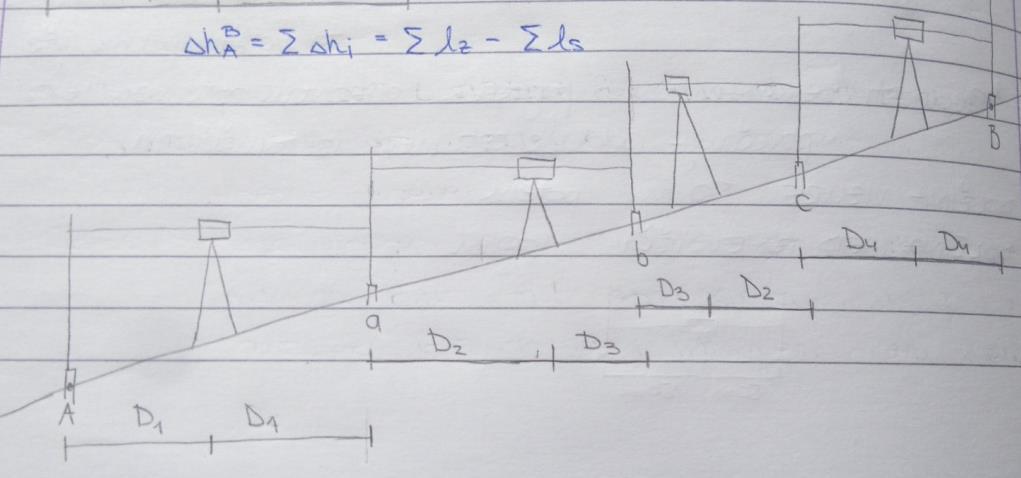 Δh_A^B = Σ Δh_i = Σ l_z - Σ l_s
B
C
D4 D4
b
D3 D2
a
D2 D3
A
D1 D1